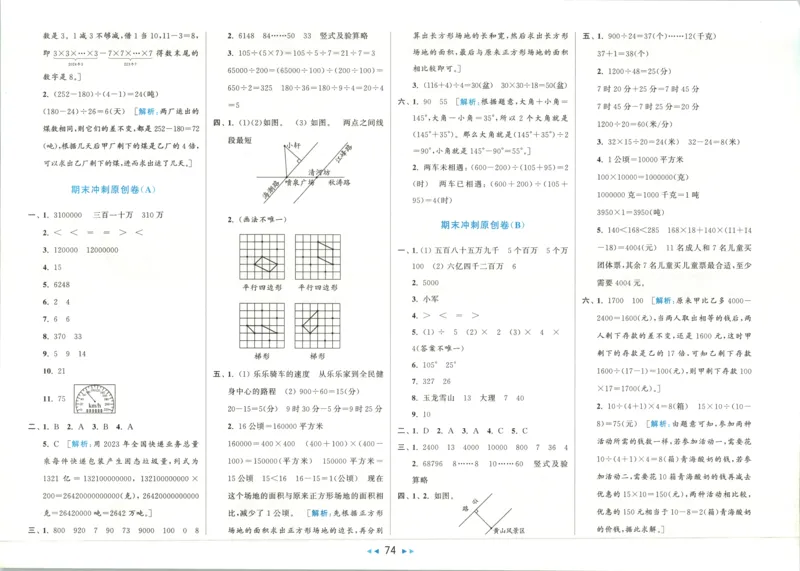 数是3。1减3不够减,借1当10,11-3=8,
即3×3×…×3-7×7×…×7得数末尾的
数字是8。]
2. (252-180)÷(4-1)=24(吨)
(180-24)÷26=6(天) [解析:两厂运出的
煤数相同,则它们的差不变,都是252-180=72
(吨)。根据几天后甲厂剩下的煤是乙厂的4倍,
可以求出乙厂剩下的煤,进而求出运了几天。]
期末冲刺原创卷(A)
一、1. 3100000 三百一十万 310万
2. < < = = > <
3. 120000 12000000
4. 15
5. 6248
6. 2 4
7. 6 6
8. 370 33
9. 5 9 14
10. 21
11. 75
km/h
二、1. B 2. A 3. B 4. A
5. C [解析:用2023年全国快递业务总量
乘每件快递包装产生固态垃圾量,列式为
1321亿=132100000000,132100000000×
200=26420000000000(克),26420000000000
克=26420000吨=2642万吨。]
三、1. 800 920 7 90 73 9000 100 0 8
2. 6148 84……50 33 竖式及验算略
3. 105÷(5×7)=105÷5÷7=21÷7=3
65000÷200=(65000÷100)÷(200÷100)=
650÷2=325 180÷36=180÷9÷4=20÷4
=5
四、1. (1)(2)如图。 (3)如图。 两点之间线
段最短
小轩
江海路
清河坊
海潮路
喷泉广场
秋涛路
2. (画法不唯一)
平行四边形 平行四边形
梯形 梯形
五、1. (1)乐乐骑车的速度 从乐乐家到全民健
身中心的路程 (2)900÷60=15(分)
20-15=5(分) 9时30分-5分=9时25分
2. 16公顷=160000平方米
160000=400×400 (400+100)×(400-
100)=150000(平方米) 150000平方米=
15公顷 15<16 16-15=1(公顷) 现在
这个场地的面积与原来正方形场地的面积相
比,减少了1公顷。 [解析:先根据正方形
场地的面积求出正方形场地的边长,再分别
算出长方形场地的长和宽,然后求出长方形
场地的面积,最后与原来正方形场地的面积
相比较即可。]
3. (116+4)÷4=30(盆) 30×30÷18=50(盆)
六、1. 90 55 [解析:根据题意,大角+小角=
145°,大角-小角=35°,所以2个大角就是
(145°+35°)。那么大角就是(145°+35°)÷2
=90°,小角就是145°-90°=55°。]
2. 两车未相遇:(600-200)÷(105+95)=2
(时) 两车已相遇:(600+200)÷(105+
95)=4(时)
期末冲刺原创卷(B)
一、1. (1)五百八十五万九千 5个百万 5个万
100 (2)六亿四千二百万 6
2. 5000
3. 小军
4. > < = >
5. (1)÷ 5 (2)× 2 (3)× 4 ×
4(答案不唯一)
6. 105° 25°
7. 327 26
8. 玉龙雪山 13 大理 7 40
9. 10
二、1. D 2. A 3. A 4. C 5. C
三、1. 2400 13 4000 10000 800 7 36 4
2. 68796 8……8 10……60 竖式及验
算略
四、1. 2. 如图。
路
公
黄山风景区
五、1. 900÷24=37(个)……12(千克)
37+1=38(个)
2. 1200÷48=25(分)
7时20分+25分=7时45分
7时45分-7时25分=20分
1200÷20=60(米/分)
3. 32×15÷20=24(米) 32-24=8(米)
4. 1公顷=10000平方米
100×10000=1000000(克)
1000000克=1000千克=1吨
3950×1=3950(吨)
5. 140<168<285 168×18+140×(11+14
-18)=4004(元) 11名成人和7名儿童买
团体票,其余7名儿童买儿童票最合适,至少
需要4004元。
六、1. 1700 100 [解析:原来甲比乙多4000-
2400=1600(元),当两人取出相等的钱后,两
人剩下存款的差不变,还是1600元,这时甲
剩下的存款是乙的17倍,可知乙剩下存款
1600÷(17-1)=100(元),则甲剩下存款100
×17=1700(元)。]
2. 10÷(4+1)×4=8(箱) 15×10÷(10-
8)=75(元) [解析:由题意可知,参加两种
活动所需的钱数一样,若参加活动一,需要花
10÷(4+1)×4=8(箱)青海酸奶的钱,若参
加活动二,需要花10箱青海酸奶的钱再减去
优惠的15×10=150(元),两种活动相比较,
优惠的150元相当于10-8=2(箱)青海酸奶
的价钱,据此求解。]
74